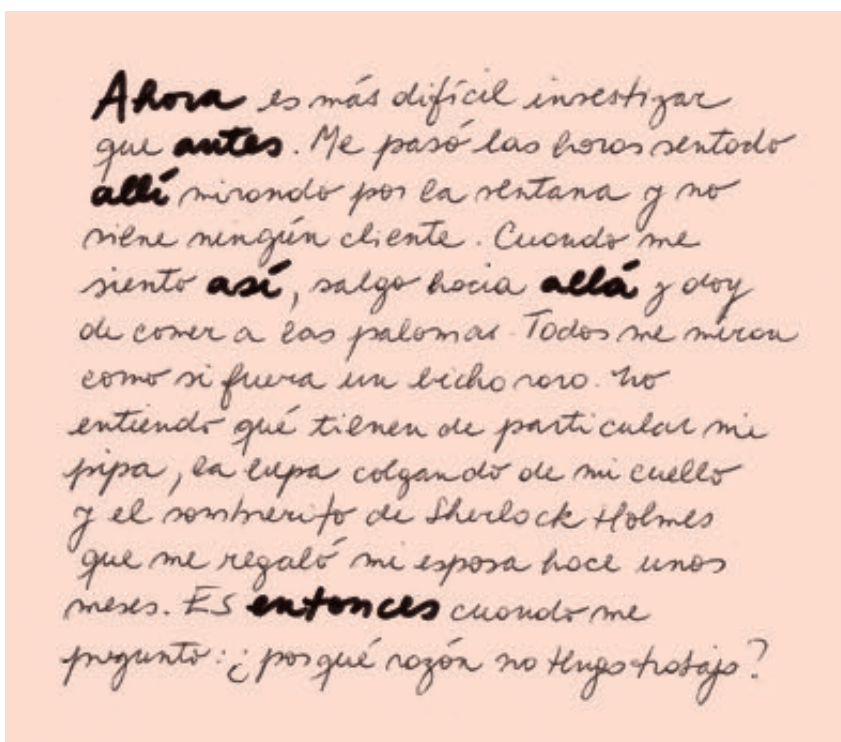 Ahora es más difícil investigar
que antes. Me pasó las horas sentado
allí mirando por la ventana y no
viene ningún cliente. Cuando me
siento así, salgo hacia allá y doy
de comer a las palomas. Todos me miran
como si fuera un bicho raro. No
entiendo qué tienen de particular mi
pipa, la lupa colgando de mi cuello
y el sombrerito de Sherlock Holmes
que me regaló mi esposa hace unos
meses. Es entonces cuando me
pregunto: ¿por qué razón no tengo trabajo?